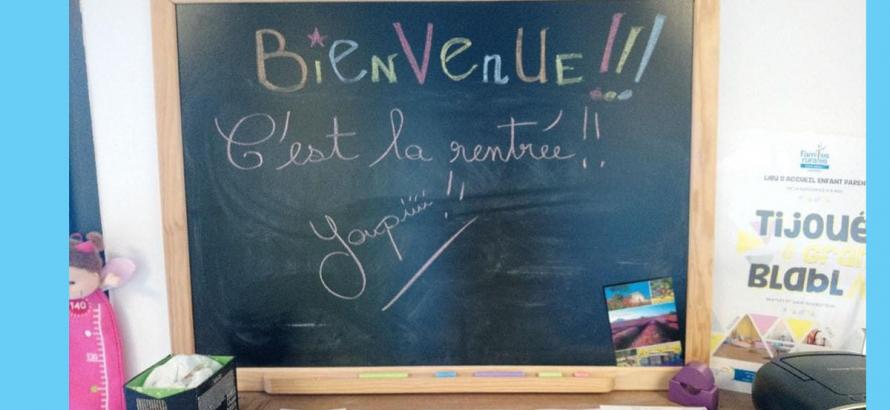 BienVenUE !!!
C'est la rentrée !!
Youpiiiii !!
familles rurales
LIEU D'ACCUEIL ENFANT PAREN
TIJOUÉ
BLABL
140